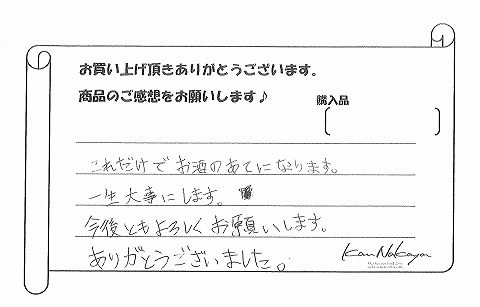 お買い上げ頂きありがとうございます。
商品のご感想をお願いします♪
購入品
これだけでお酒のあてになります。
一生大事にします。
今後ともよろしくお願いします。
ありがとうございました。